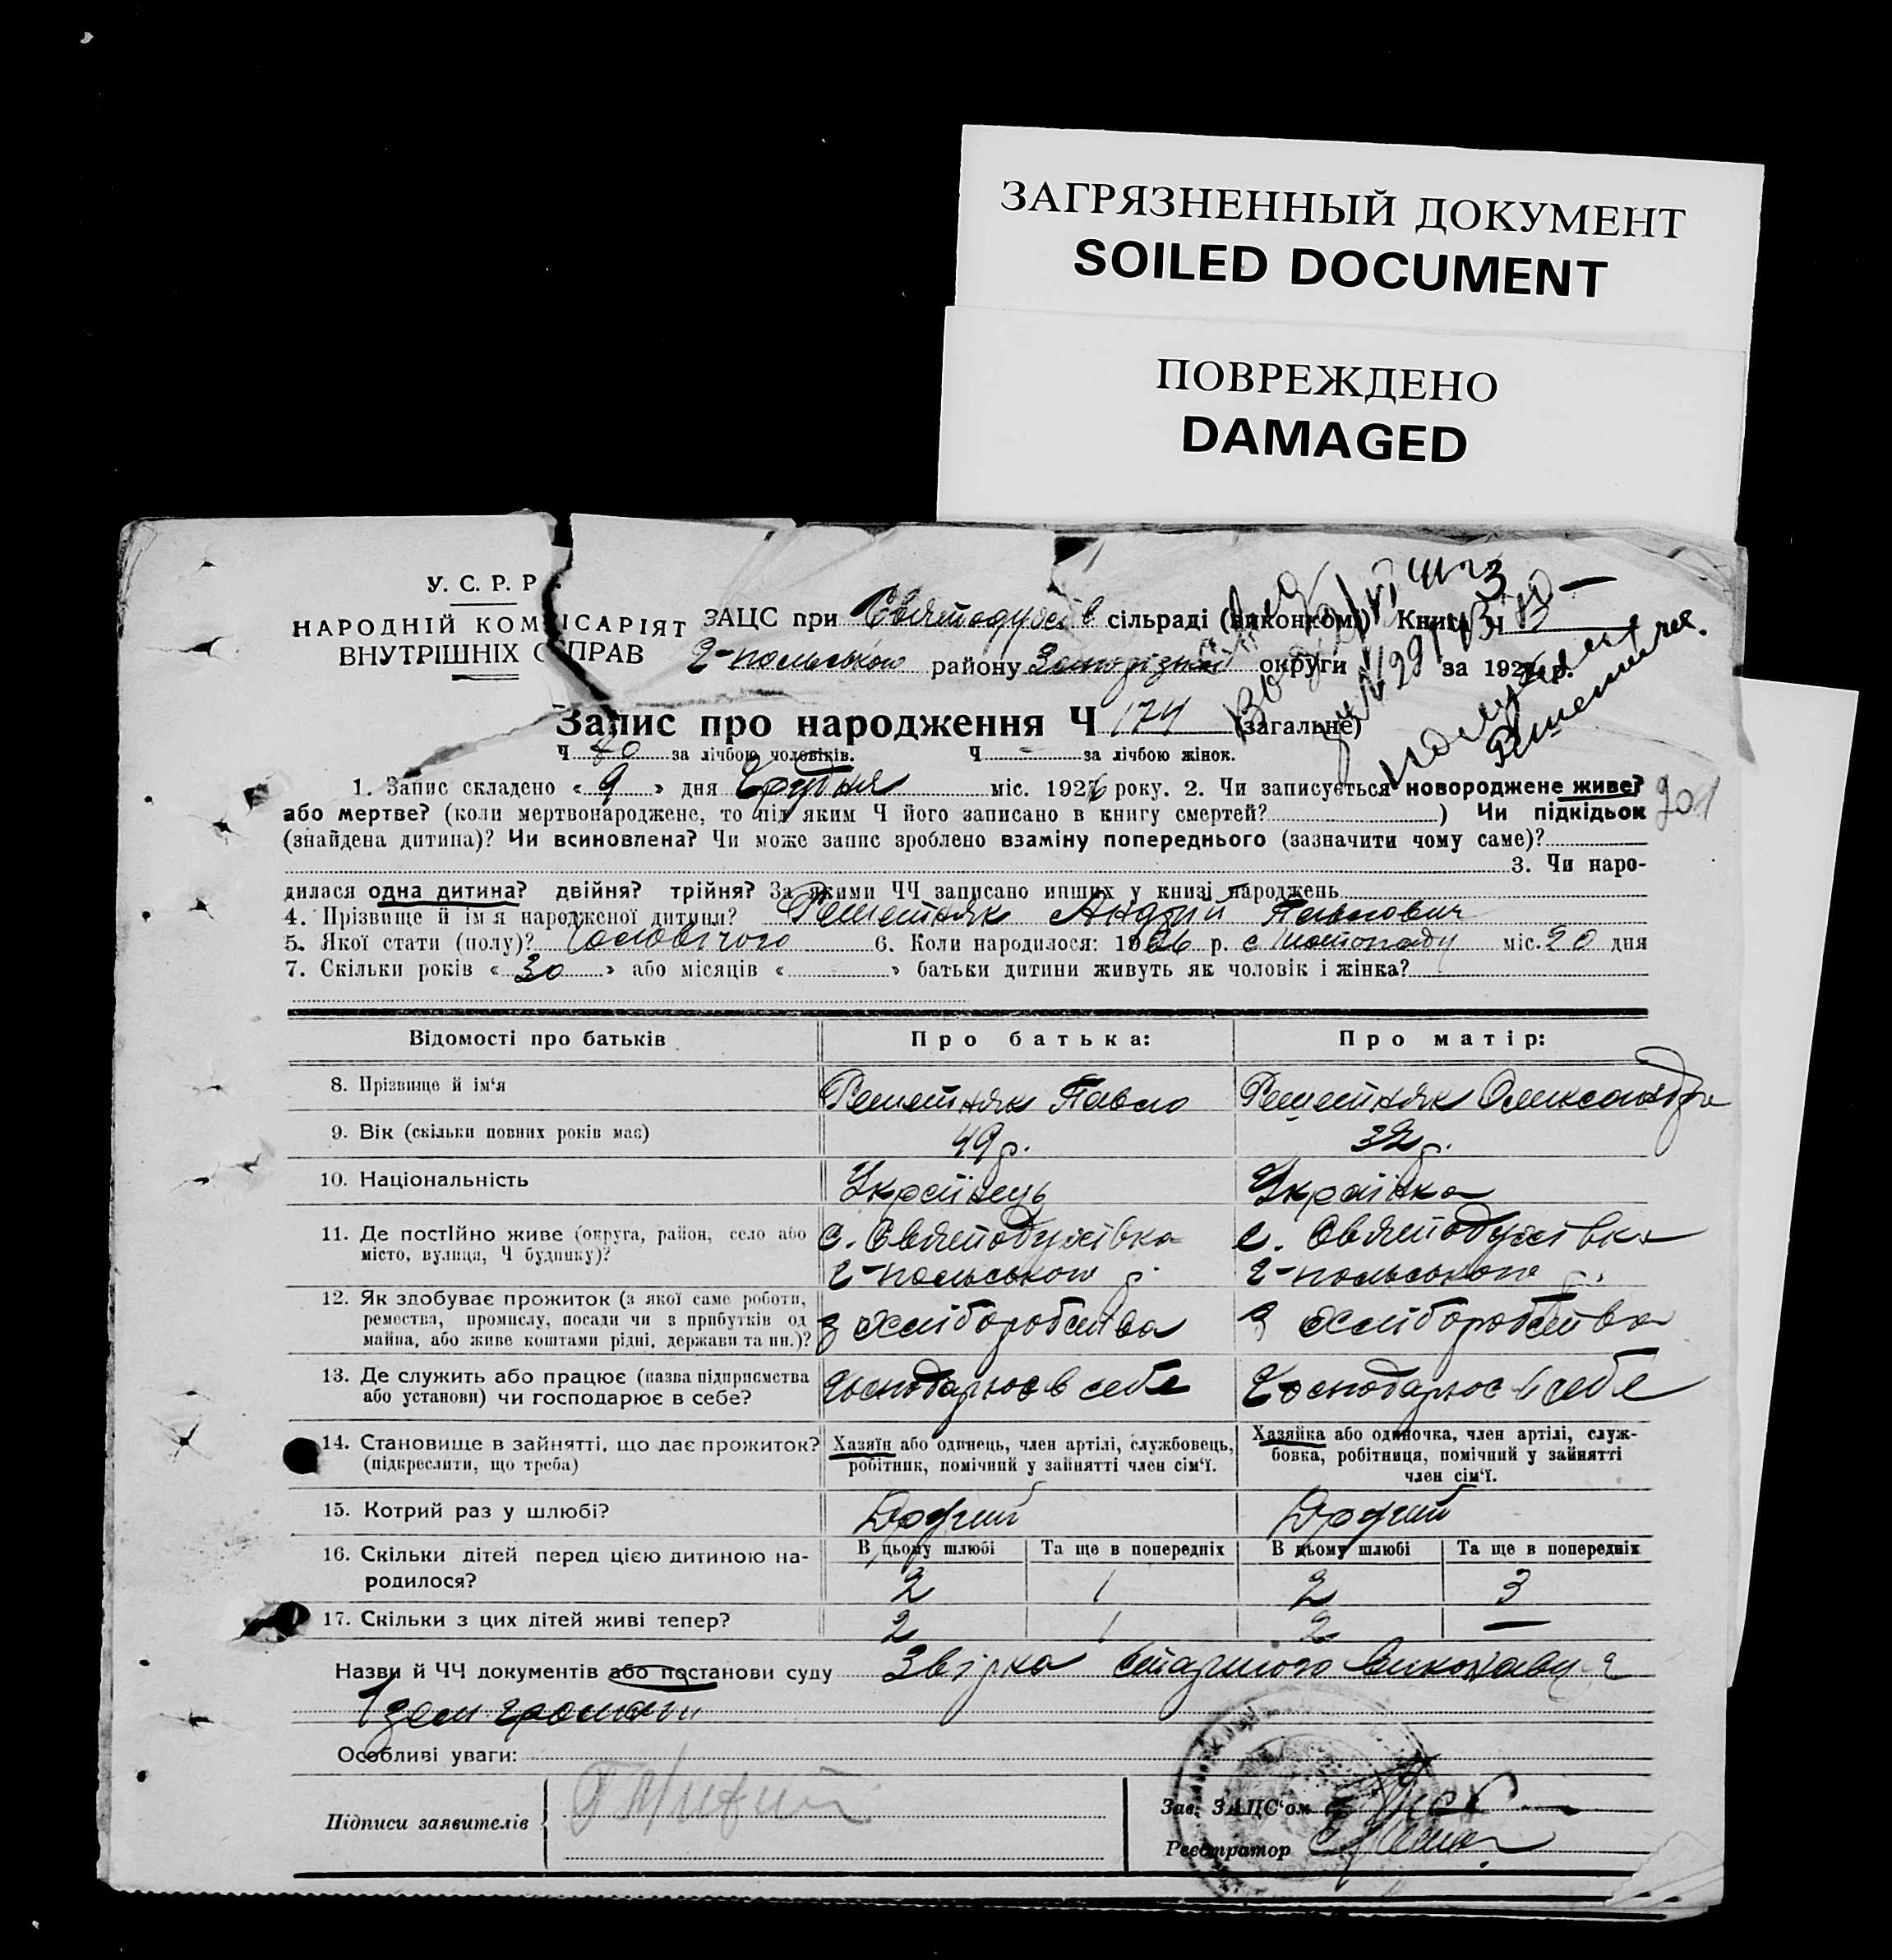 ЗАГРЯЗНЕННЫЙ ДОКУМЕНТ
SOILED DOCUMENT
ПОВРЕЖДЕНО
DAMAGED
У. С. Р. Р.
НАРОДНІЙ КОМІСАРІЯТ
ВНУТРІШНІХ СПРАВ
ЗАЦС при сільраді (виконкомі) Книга Ч
г-польського району округи за 1926 р.
Запис про народження Ч 174 (загальне)
Ч за лічбою чоловіків. Ч за лічбою жінок.
1. Запис складено « 9 » дня Грудня міс. 1926 року. 2. Чи записується новороджене живе?
або мертве? (коли мертвонароджене, то під яким Ч його записано в книгу смертей? ) Чи підкідьок
201
(знайдена дитина)? Чи всиновлена? Чи може запис зроблено взаміну попереднього (зазначити чому саме)?
3. Чи наро-
дилася одна дитина? двійня? трійня? За якими ЧЧ записано инших у книзі народжень
4. Прізвище й ім'я народженої дитини? Решетняк Андрій Павлович
5. Якої стати (полу)? чоловічого 6. Коли народилося: 1926 р. листопаду міс. 20 дня
7. Скільки років « 30 » або місяців « » батьки дитини живуть як чоловік і жінка?
Відомості про батьків Про батька: Про матір:
8. Прізвище й ім'я Решетняк Павло Решетняк Олександра
9. Вік (скільки повних років має) 49 р. 32 р.
10. Національність Українець Українка
11. Де постійно живе (округа, район, село або
місто, вулиця, Ч будинку)?
с. Святодухівка
г-польського р.
с. Святодухівка
г-польського р.
12. Як здобуває прожиток (з якої саме роботи,
ремества, промислу, посади чи з прибутків од
майна, або живе коштами рідні, держави та ин.)?
з хліборобства з хліборобства
13. Де служить або працює (назва підприємства
або установи) чи господарює в себе?
господарює в себе Господарює в себе
14. Становище в зайнятті, що дає прожиток?
(підкреслити, що треба)
Хазяїн або одинець, член артілі, службовець,
робітник, помічний у зайнятті член сім'ї.
Хазяйка або одиночка, член артілі, служ-
бовка, робітниця, помічний у зайнятті
член сім'ї.
15. Котрий раз у шлюбі? Другий Другий
16. Скільки дітей перед цією дитиною на-
родилося?
В цьому шлюбі Та ще в попередніх В цьому шлюбі Та ще в попередніх
2 1 2 3
17. Скільки з цих дітей живі тепер? 2 1 2 —
Назви й ЧЧ документів або постанови суду Звірка
Особливі уваги:
Підписи заявителів
Зав. ЗАЦС'ом
Реєстратор